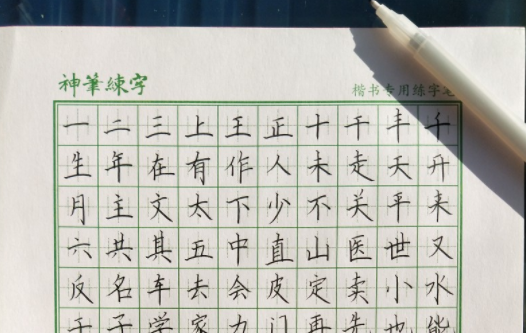 神筆練字
楷书专用练字笔
一二三上王正十干丰千
生年在有作人未走天升
月主文太下少不关平来
六共其五中直山医世又
反名车去会皮定卖小水
子学家力门再先也能